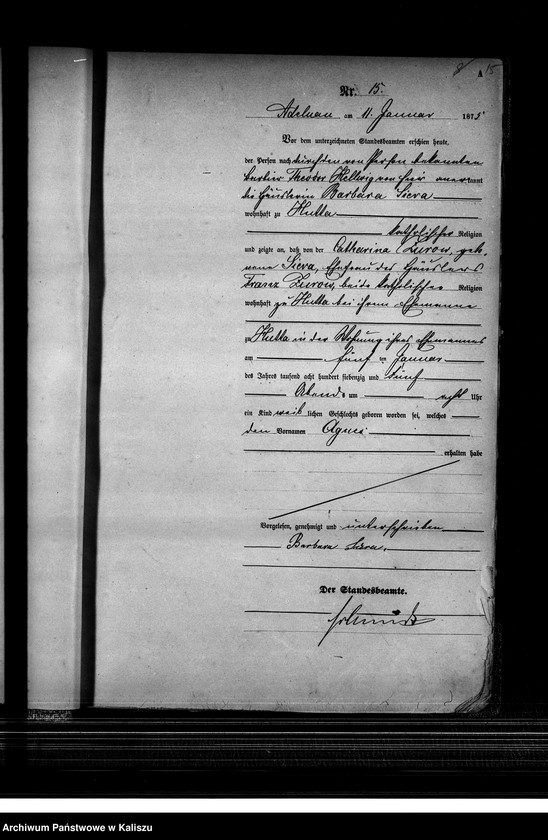 A 15
Nr. 15.
Adelnau am 11. Januar 1875
Vor dem unterzeichneten Standesbeamten erschien heute,
der Person nach durch den von Person bekannten
Theodor Hellwig von hier aner kannt
die Häuslerin Barbara Siera
wohnhaft zu Hutta
katholischer Religion
und zeigte an, daß von der Catharina Zurow, geb.
Siera, Ehefrau des Häuslers
Franz Zurow, beide katholischer Religion
wohnhaft zu Hutta bei ihrem Ehemanne
zu Hutta in der Wohnung ihres Ehemannes
am fünf ten Januar
des Jahres tausend acht hundert siebenzig und fünf
Abends um acht Uhr
ein Kind weib lichen Geschlechts geboren worden sei, welches
den Vornamen Agnes
erhalten habe
Vorgelesen, genehmigt und unterschrieben
Barbara Siera.
Der Standesbeamte.
Archiwum Państwowe w Kaliszu